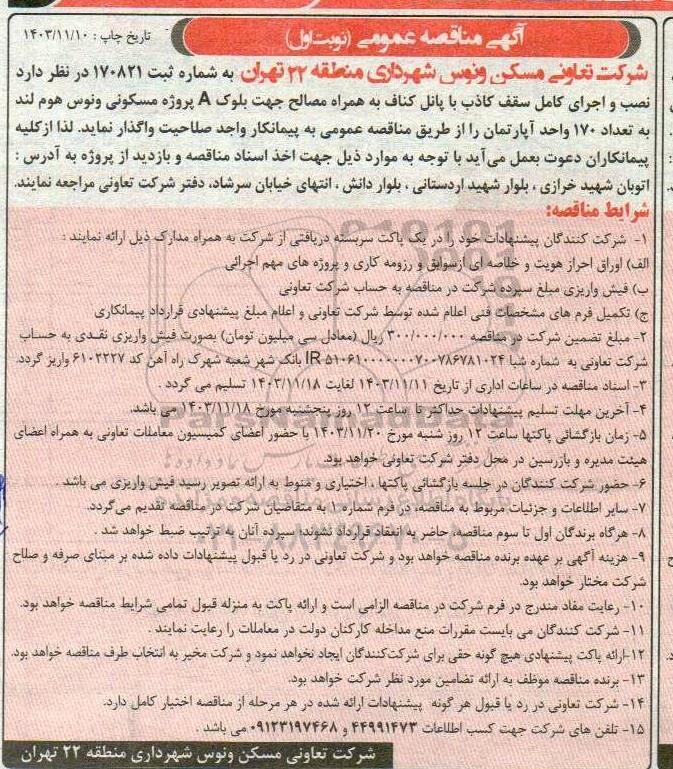 آگهی مناقصه عمومی (نوبت اول)
تاریخ چاپ : ۱۴۰۳/۱۱/۱۰
شرکت تعاونی مسکن ونوس شهرداری منطقه ۲۲ تهران به شماره ثبت ۱۷۰۸۲۱ در نظر دارد
نصب و اجرای کامل سقف کاذب با پانل کناف به همراه مصالح جهت بلوک A پروژه مسکونی ونوس هوم لند
به تعداد ۱۷۰ واحد آپارتمان را از طریق مناقصه عمومی به پیمانکار واجد صلاحیت واگذار نماید. لذا ازکلیه
پیمانکاران دعوت بعمل می‌آید با توجه به موارد ذیل جهت اخذ اسناد مناقصه و بازدید از پروژه به آدرس :
اتوبان شهید خرازی ، بلوار شهید اردستانی ، بلوار دانش ، انتهای خیابان سرشاد، دفتر شرکت تعاونی مراجعه نمایند.
شرایط مناقصه:
۱- شرکت کنندگان پیشنهادات خود را در یک پاکت سربسته دریافتی از شرکت به همراه مدارک ذیل ارائه نمایند :
الف) اوراق احراز هویت و خلاصه ای ازسوابق و رزومه کاری و پروژه های مهم اجرائی
ب) فیش واریزی مبلغ سپرده شرکت در مناقصه به حساب شرکت تعاونی
ج) تکمیل فرم های مشخصات فنی اعلام شده توسط شرکت تعاونی و اعلام مبلغ پیشنهادی قرارداد پیمانکاری
۲- مبلغ تضمین شرکت در مناقصه ۳۰۰/۰۰۰/۰۰۰ ریال (معادل سی میلیون تومان) بصورت فیش واریزی نقدی به حساب
شرکت تعاونی به شماره شبا IR ۵۱۰۶۱۰۰۰۰۰۰۰۷۰۰۷۸۶۷۸۱۰۲۴ بانک شهر شعبه شهرک راه آهن کد ۶۱۰۲۲۲۷ واریز گردد.
۳- اسناد مناقصه در ساعات اداری از تاریخ ۱۴۰۳/۱۱/۱۱ لغایت ۱۴۰۳/۱۱/۱۸ تسلیم می گردد .
۴- آخرین مهلت تسلیم پیشنهادات حداکثر تا ساعت ۱۲ روز پنجشنبه مورخ ۱۴۰۳/۱۱/۱۸ می باشد.
۵- زمان بازگشائی پاکتها ساعت ۱۲ روز شنبه مورخ ۱۴۰۳/۱۱/۲۰ با حضور اعضای کمیسیون معاملات تعاونی به همراه اعضای
هیئت مدیره و بازرسین در محل دفتر شرکت تعاونی خواهد بود.
۶- حضور شرکت کنندگان در جلسه بازگشائی پاکتها ، اختیاری و منوط به ارائه تصویر رسید فیش واریزی می باشد .
۷- سایر اطلاعات و جزئیات مربوط به مناقصه، در فرم شماره ۱ به متقاضیان شرکت در مناقصه تقدیم می‌گردد.
۸- هرگاه برندگان اول تا سوم مناقصه حاضر به انعقاد قرارداد نشوند، سپرده آنان به ترتیب ضبط خواهد شد .
۹- هزینه آگهی بر عهده برنده مناقصه خواهد بود و شرکت تعاونی در رد یا قبول پیشنهادات داده شده بر مبنای صرفه و صلاح
شرکت مختار خواهد بود.
۱۰- رعایت مفاد مندرج در فرم شرکت در مناقصه الزامی است و ارائه پاکت به منزله قبول تمامی شرایط مناقصه خواهد بود.
۱۱- شرکت کنندگان می بایست مقررات منع مداخله کارکنان دولت در معاملات را رعایت نمایند .
۱۲-ارائه پاکت پیشنهادی هیچ گونه حقی برای شرکت‌کنندگان ایجاد نخواهد نمود و شرکت مخیر به انتخاب طرف مناقصه خواهد بود.
۱۳- برنده مناقصه موظف به ارائه تضامین مورد نظر شرکت خواهد بود.
۱۴- شرکت تعاونی در رد یا قبول هر گونه پیشنهادات ارائه شده در هر مرحله از مناقصه اختیار کامل دارد.
۱۵- تلفن های شرکت جهت کسب اطلاعات ۴۴۹۹۱۴۷۳ و ۰۹۱۲۳۱۹۷۴۶۸ می باشد .
شرکت تعاونی مسکن ونوس شهرداری منطقه ۲۲ تهران